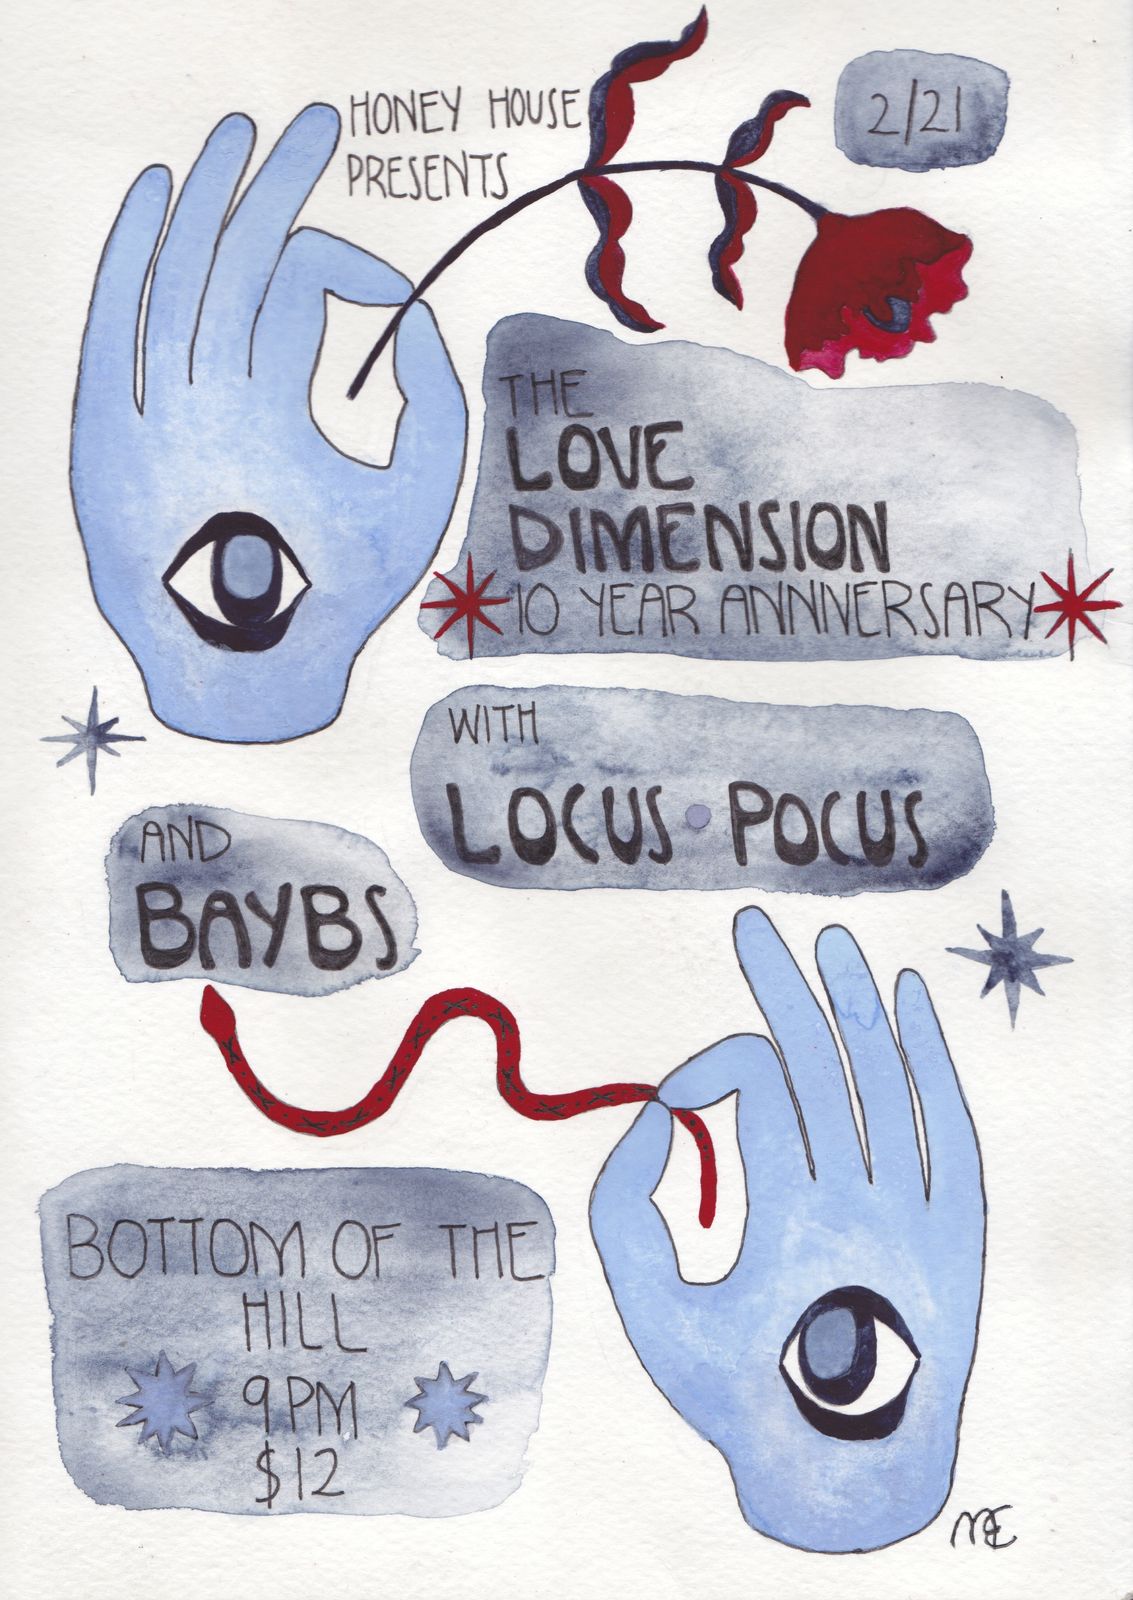 HONEY HOUSE
PRESENTS
2/21
THE
LOVE
DIMENSION
10 YEAR ANNNERSARY
WITH
LOCUS • POCUS
AND
BAYBS
BOTTOM OF THE
HILL
9 PM
$12
ME